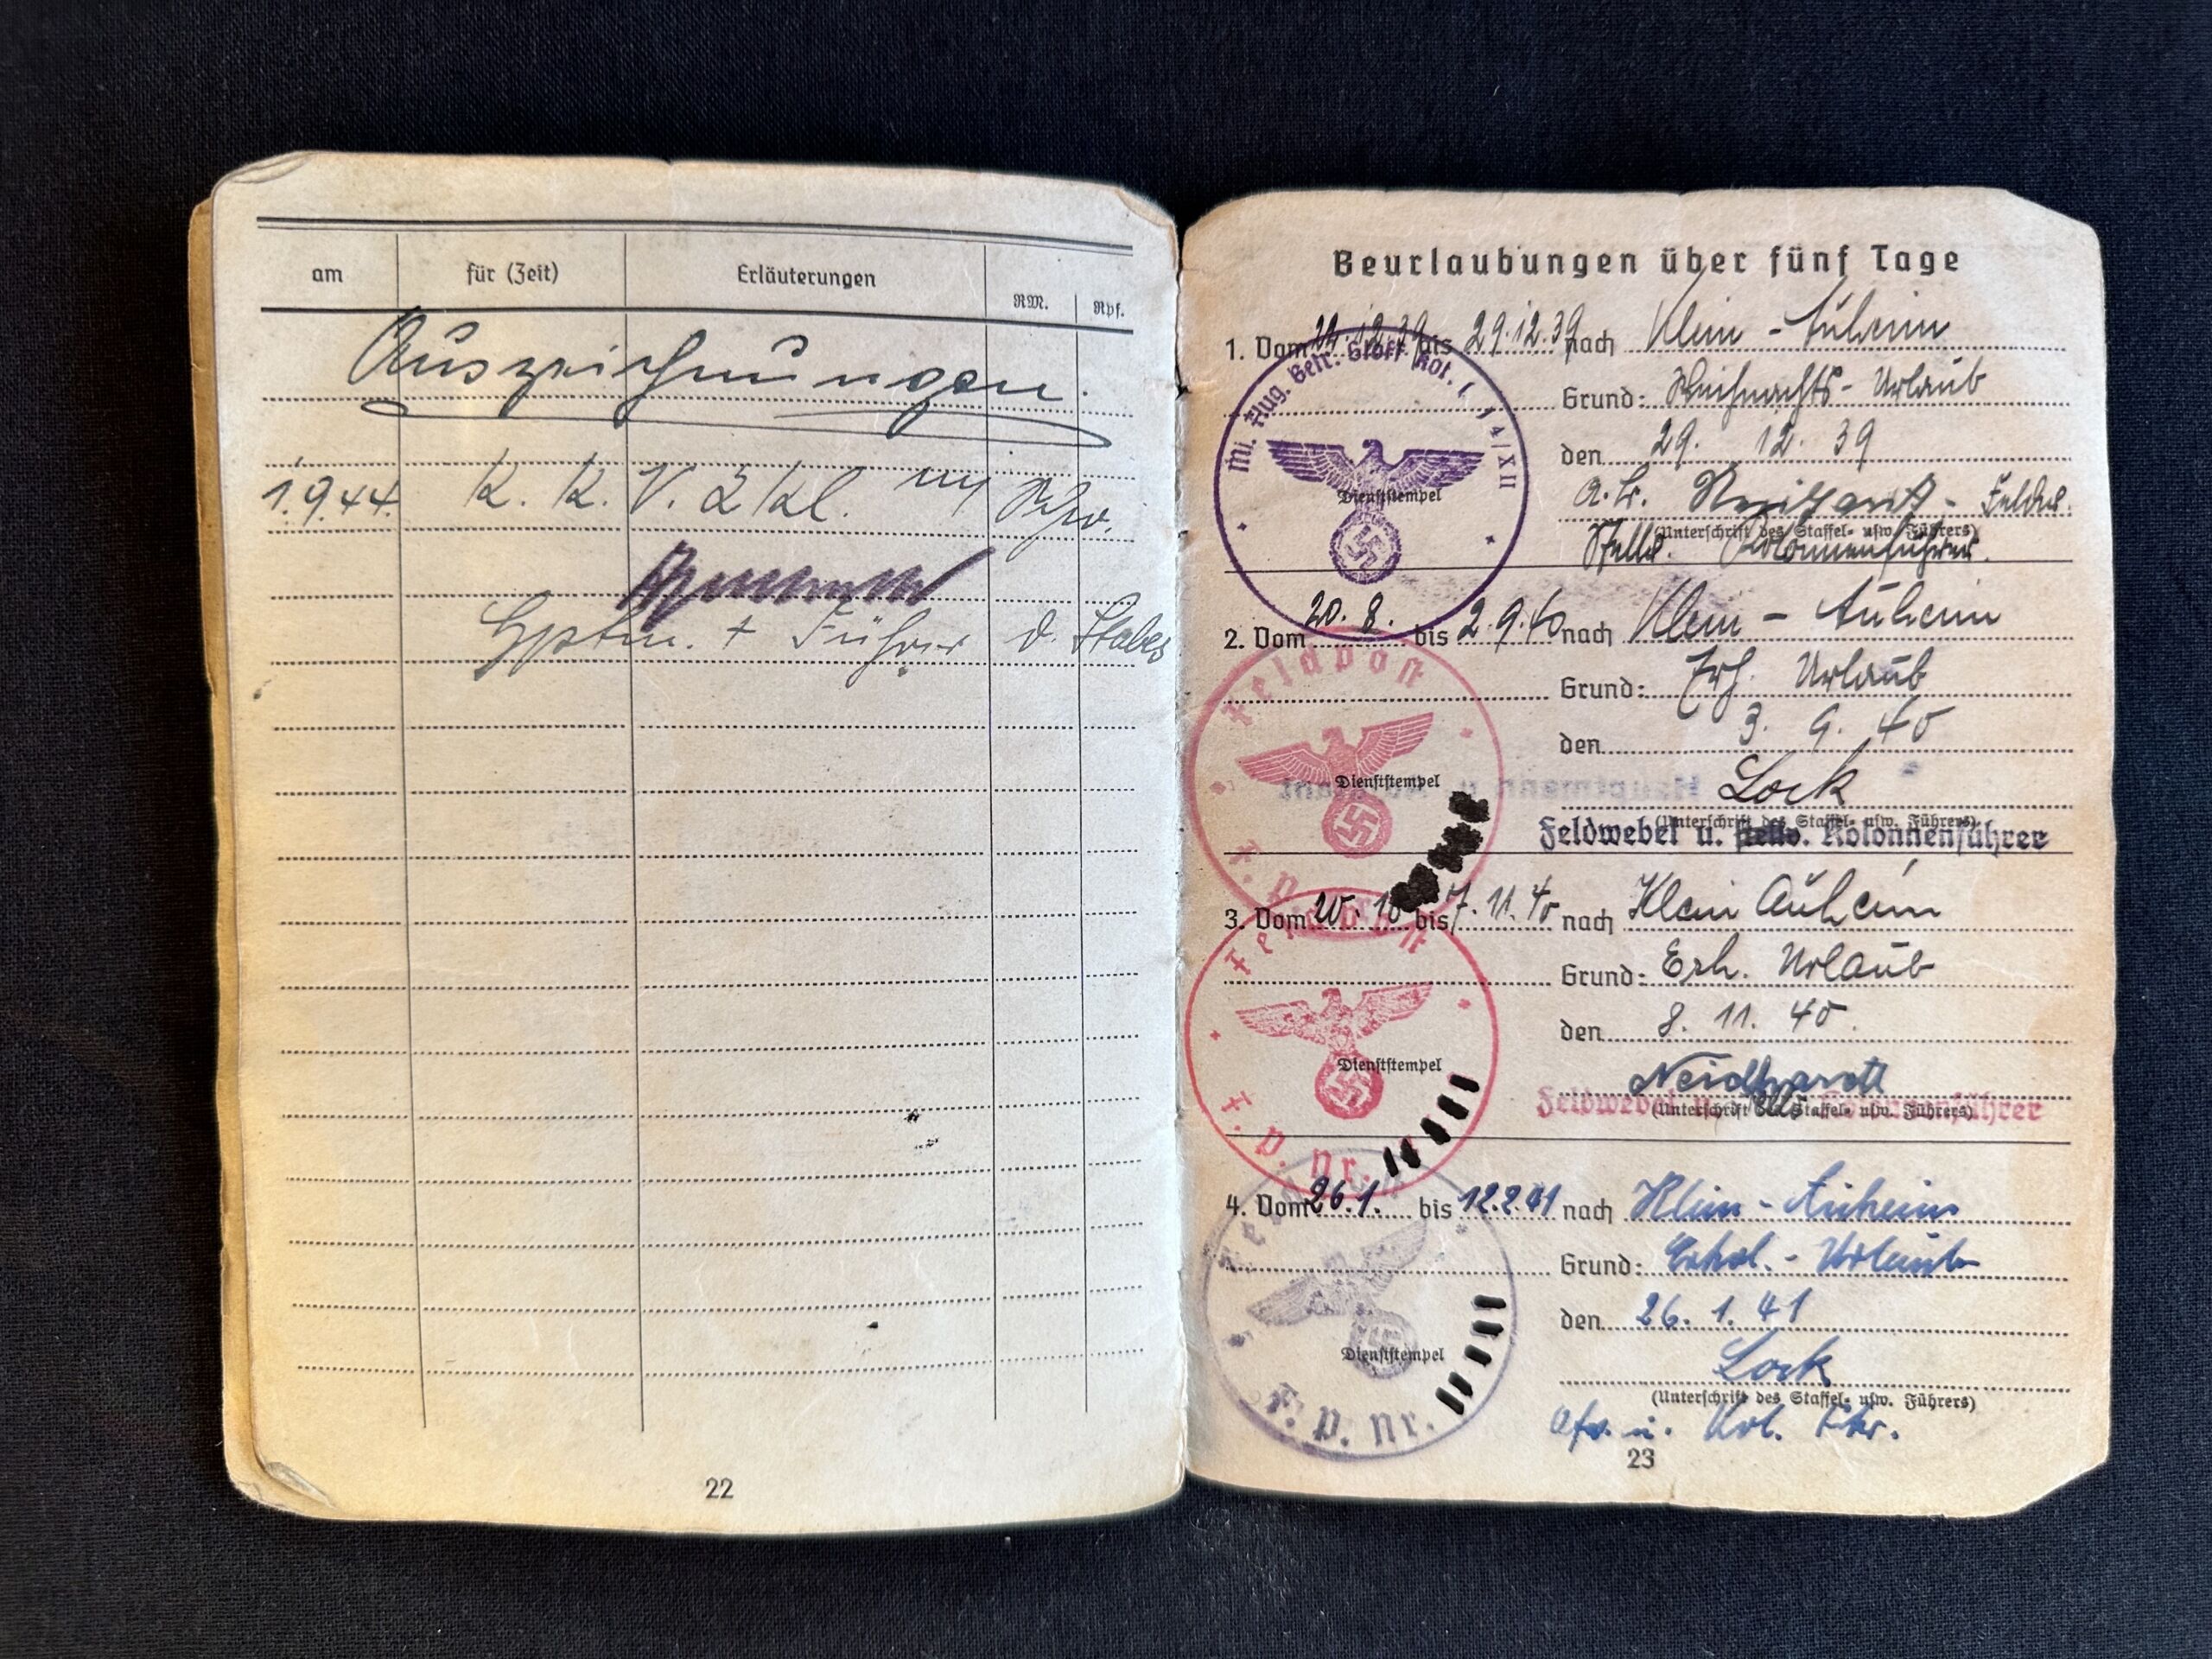 am für (Zeit) Erläuterungen RM. Rpf.
Auszeichnungen.
1.9.44. K. K. V. 2 Kl. m/ Schw.
Hptm. + Führer d. Stabes
22
Beurlaubungen über fünf Tage
1. Vom 22.12.39 bis 29.12.39 nach Klein-Auheim
Grund: Weihnachts-Urlaub
den 29. 12. 39
Neidhardt - Feldw.
(Unterschrift des Staffel- usw. Führers)
Stellv. Kolonnenführer.
Dienststempel
2. Vom 20. 8. bis 2.9.40 nach Klein-Auheim
Grund: Erh. Urlaub
den 3. 9. 40
Lock
(Unterschrift des Staffel- usw. Führers)
Feldwebel u. stellv. Kolonnenführer
Feldpost
Dienststempel
F. P.
3. Vom 20. 10 bis 7.11.40 nach Klein Auheim
Grund: Erh. Urlaub
den 8. 11. 40.
Neidhardt
(Unterschrift des Staffel- usw. Führers)
Feldwebel u. Kolonnenführer
Feldpost
Dienststempel
F. P. nr.
4. Vom 26.1. bis 12.2.41 nach Klein-Auheim
Grund: Erhol.-Urlaub
den 26. 1. 41
Lock
(Unterschrift des Staffel- usw. Führers)
Ofw. u. Kol. Fhr.
Dienststempel
F. P. nr.
23